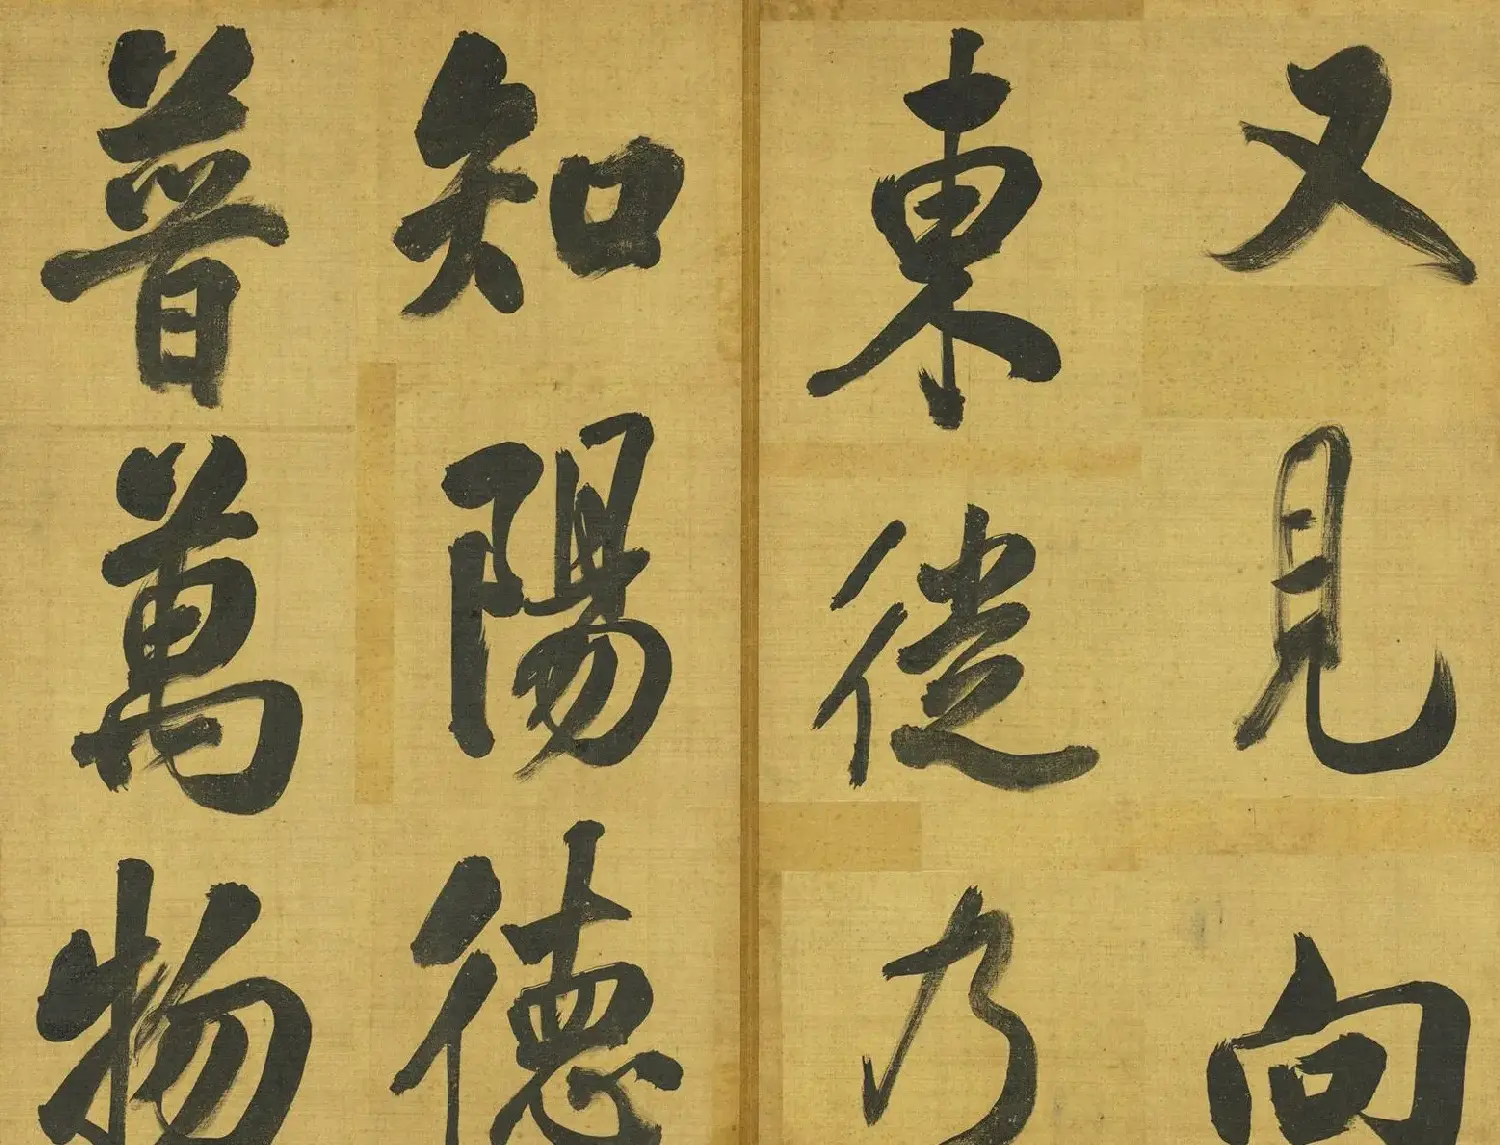 又見向
東徙乃
知陽德
普萬物